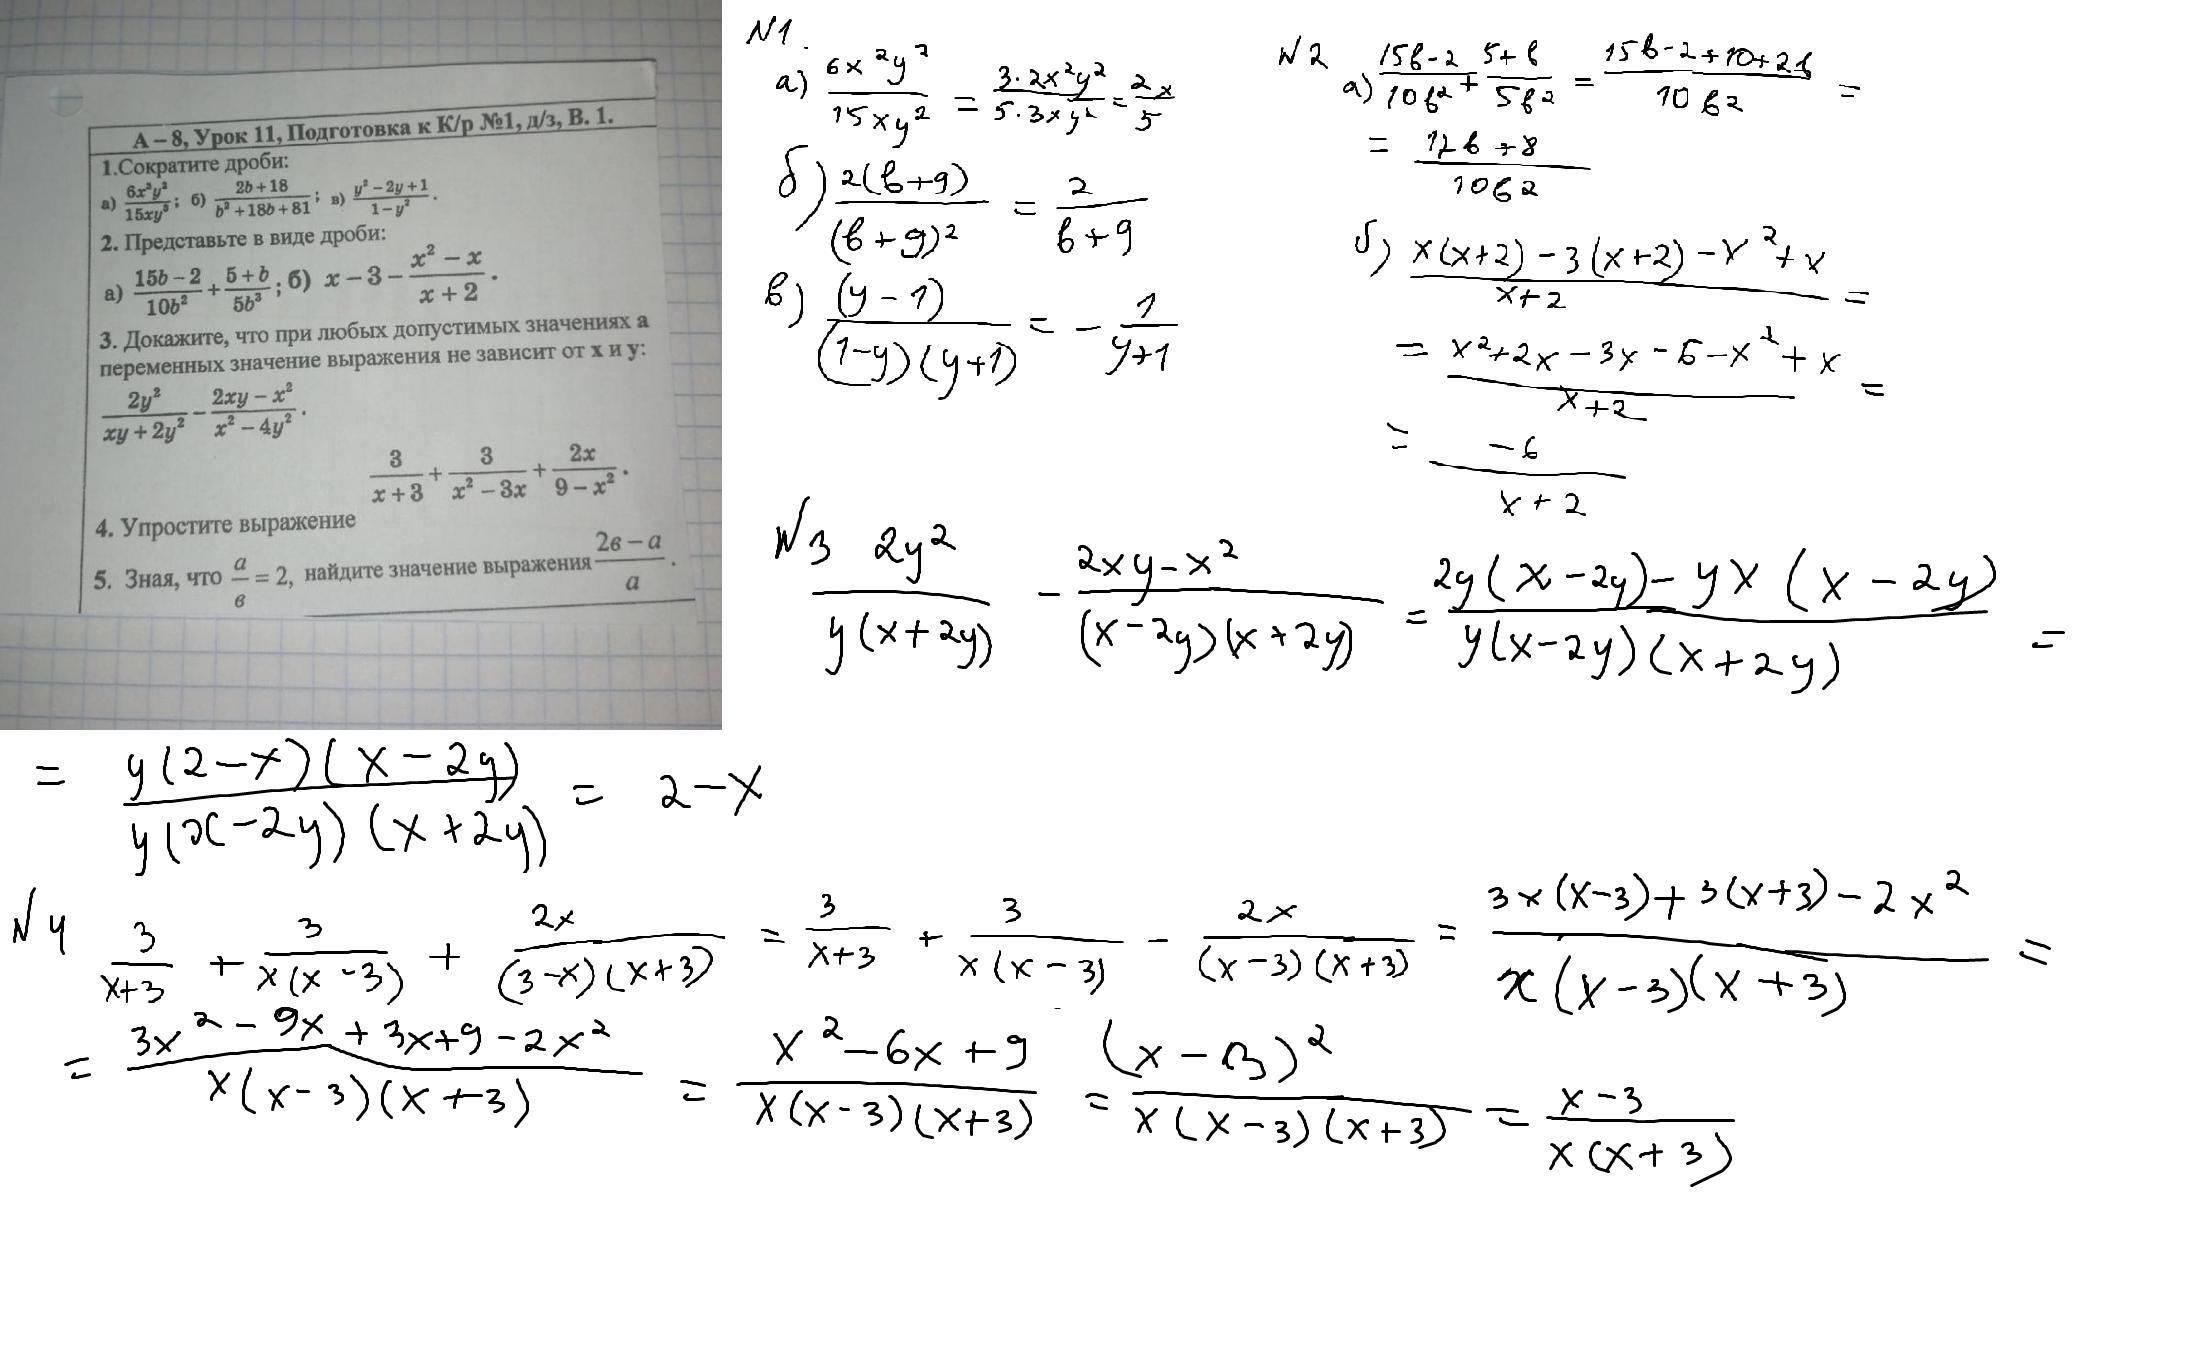 А – 8, Урок 11, Подготовка к К/р №1, д/з, В. 1.
1.Сократите дроби:
а) 6x²y²/15xy³; б) (2b+18)/(b²+18b+81); в) (y²−2y+1)/(1−y²).
2. Представьте в виде дроби:
а) (15b−2)/10b² + (5+b)/5b³; б) x−3−(x²−x)/(x+2).
3. Докажите, что при любых допустимых значениях а
переменных значение выражения не зависит от х и у:
2y²/(xy+2y²) − (2xy−x²)/(x²−4y²).
3/(x+3) + 3/(x²−3x) + 2x/(9−x²).
4. Упростите выражение
5. Зная, что a/в = 2, найдите значение выражения (2в−a)/a.
N1.
а) 6x²y²/15xy² = 3·2x²y²/5·3xy² = 2x/5
б) 2(b+9)/(b+9)² = 2/(b+9)
в) (y−1)/(1−y)(y+1) = −1/(y+1)
N2
а) (15b−2)/10b² + (5+b)/5b2 = (15b−2+10+2b)/10b2 =
= (17b+8)/10b2
б) (x(x+2)−3(x+2)−x²+x)/(x+2) =
= (x²+2x−3x−6−x²+x)/(x+2) =
= −6/(x+2)
N3 2y²/y(x+2y) − (2xy−x²)/(x−2y)(x+2y) = (2y(x−2y)−yx(x−2y))/y(x−2y)(x+2y) =
= y(2−x)(x−2y)/y(x−2y)(x+2y) = 2−x
N4 3/(x+3) + 3/x(x−3) + 2x/(3−x)(x+3) = 3/(x+3) + 3/x(x−3) − 2x/(x−3)(x+3) = (3x(x−3)+3(x+3)−2x²)/x(x−3)(x+3) =
= (3x²−9x+3x+9−2x²)/x(x−3)(x+3) = (x²−6x+9)/x(x−3)(x+3) = (x−3)²/x(x−3)(x+3) = (x−3)/x(x+3)